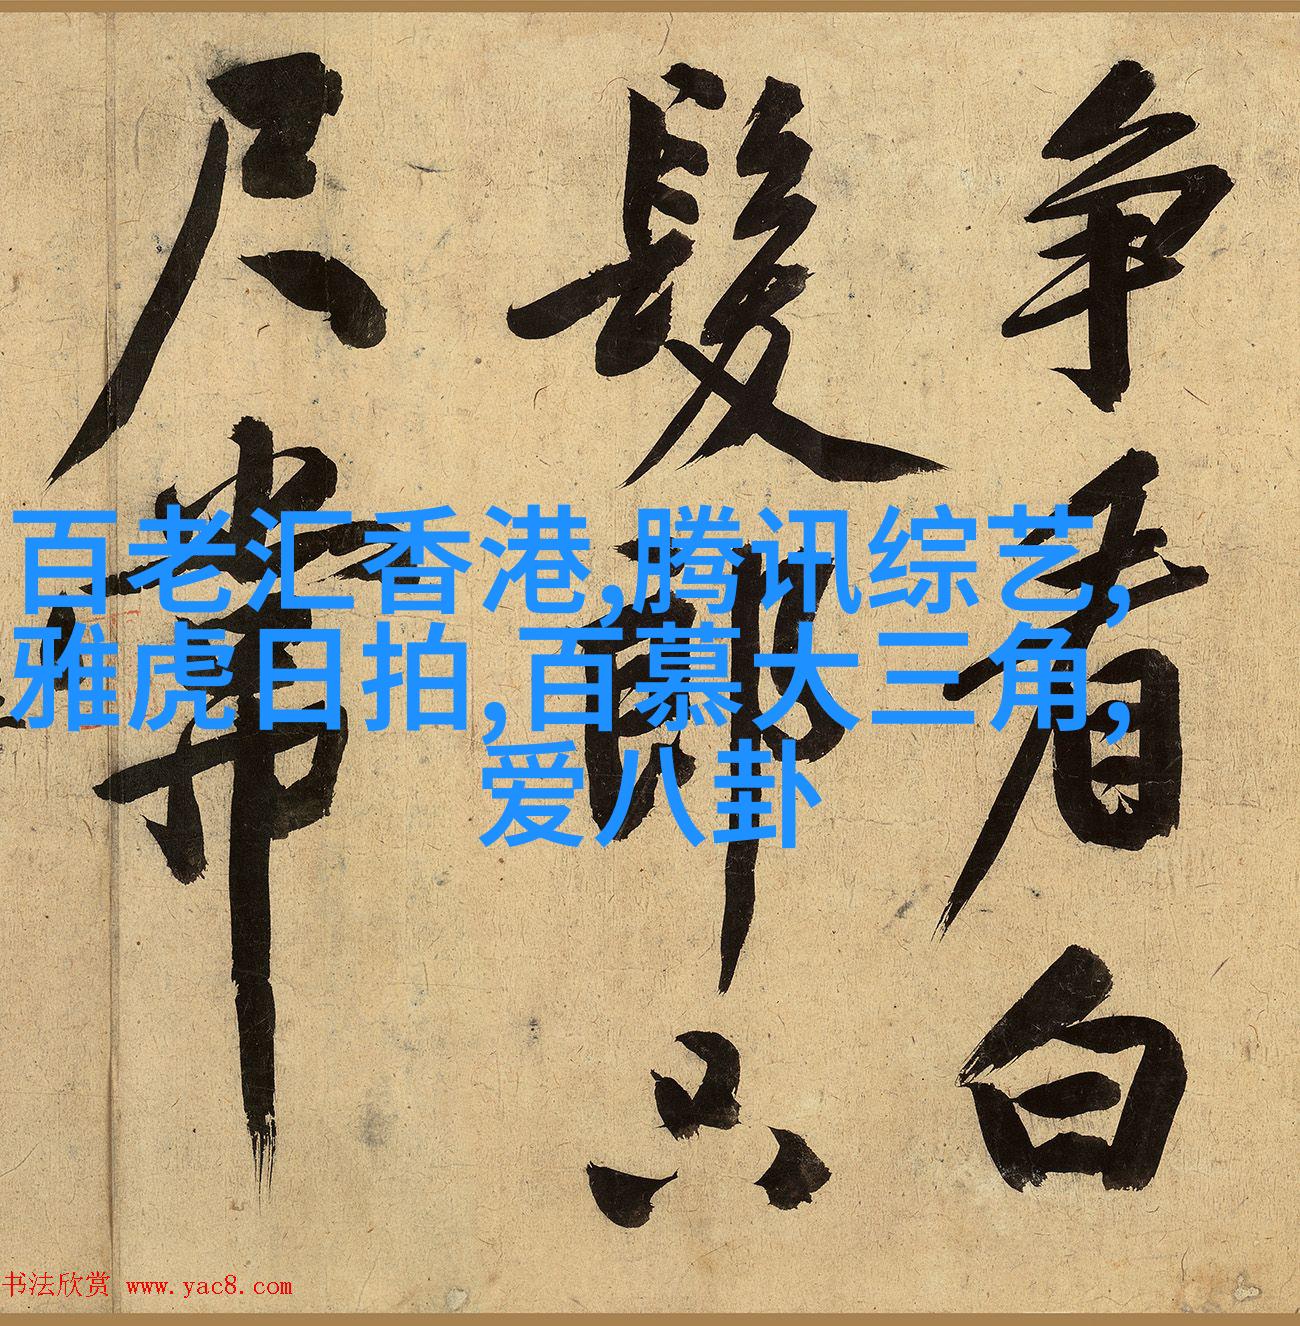 争看白
髮郎只
尺常
百老汇香港,腾讯综艺,
雅虎日拍,百慕大三角,
爱八卦
书法欣赏 www.yac8.com